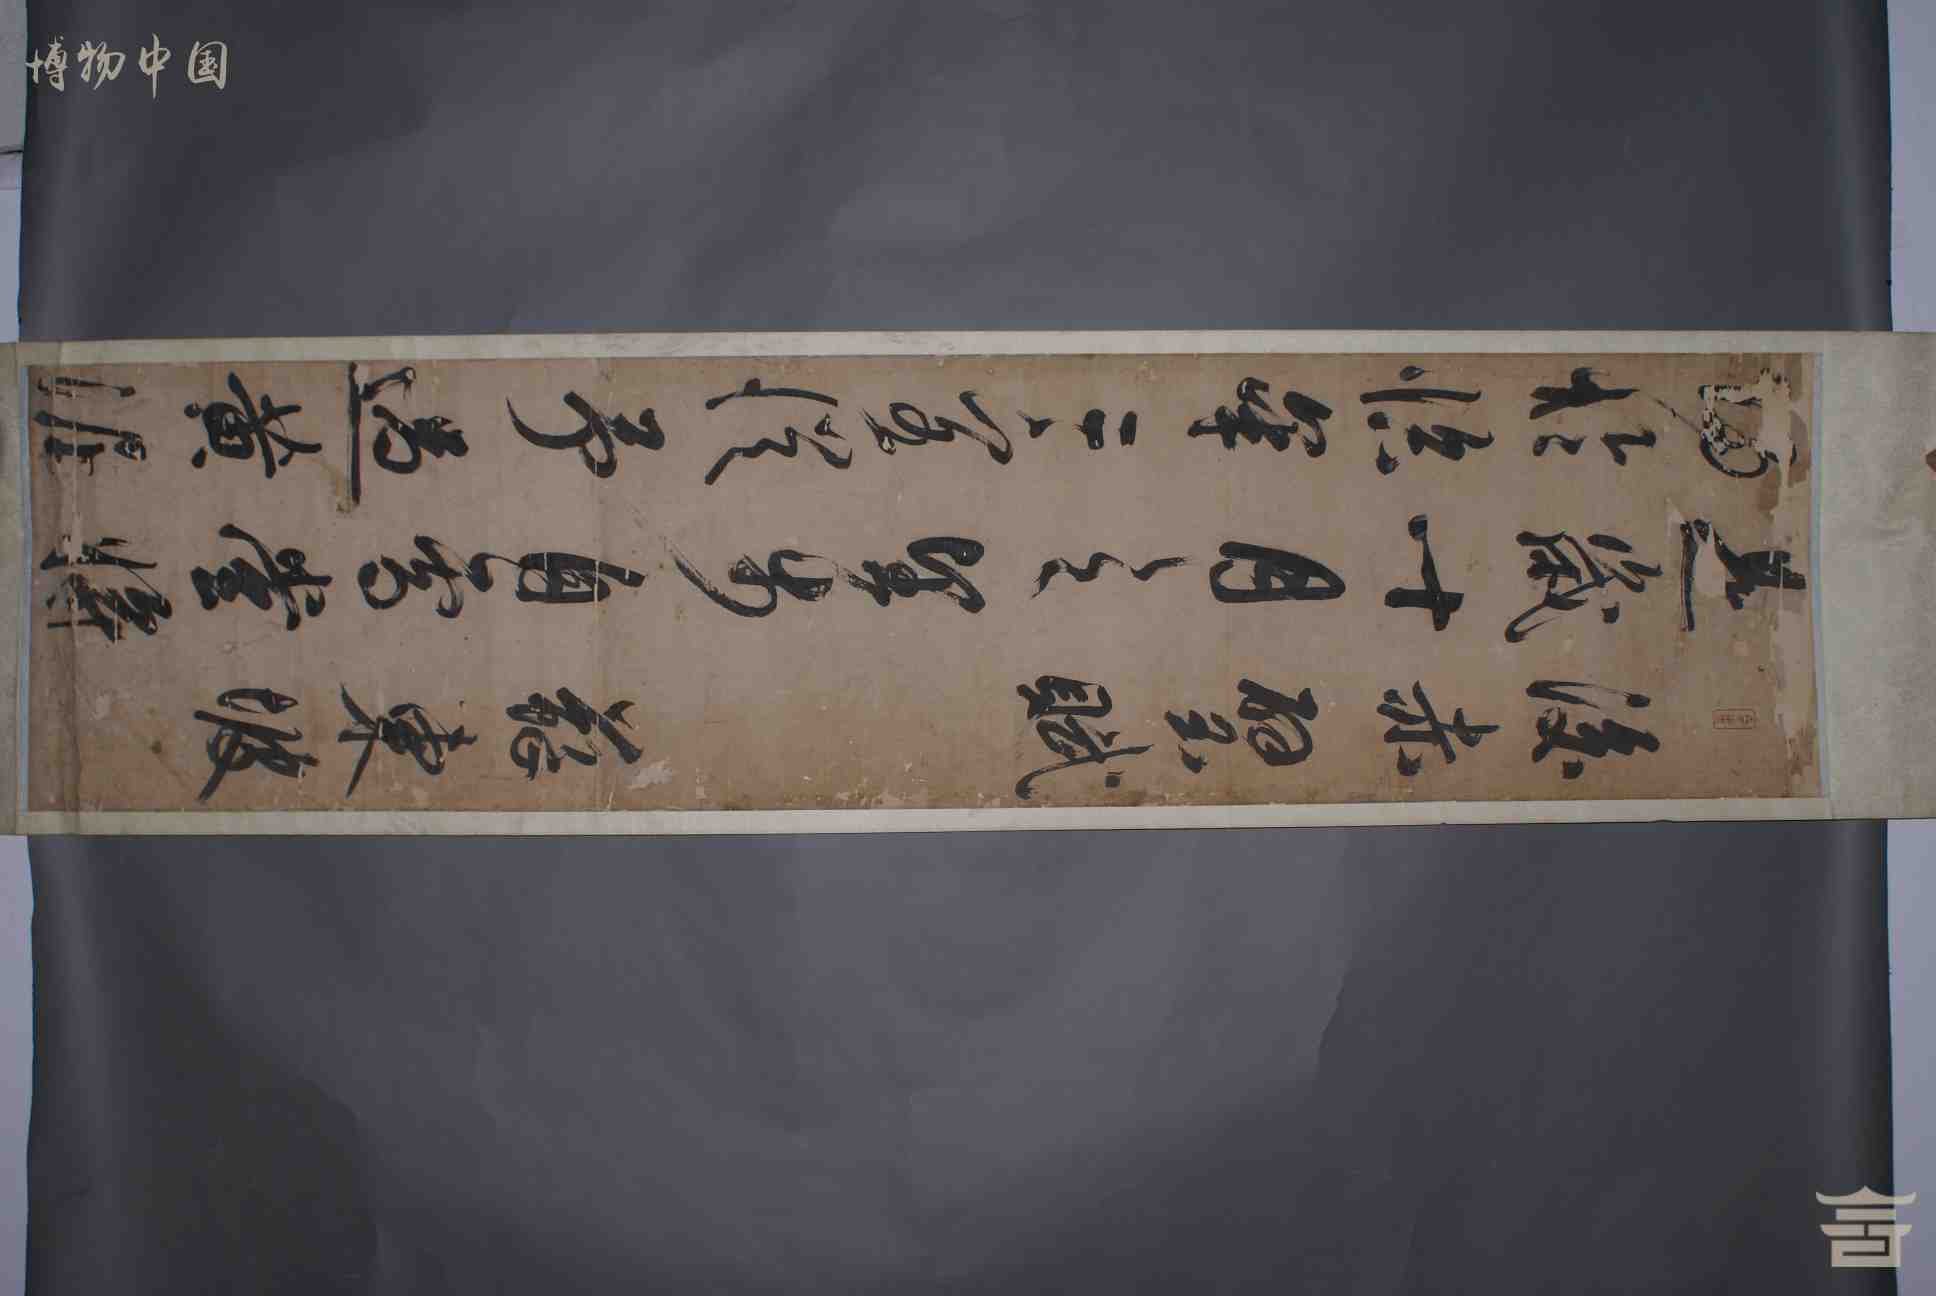 博物中国
後赤壁賦 蘇東坡
是歲十月之望步自雪堂將
歸於臨皋二客從予過黃泥